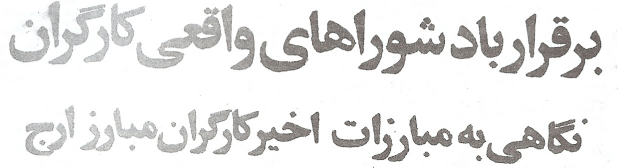 برقرار باد شوراهای واقعی کارگران
نگاهی به مبارزات اخیر کارگران مبارز ارج